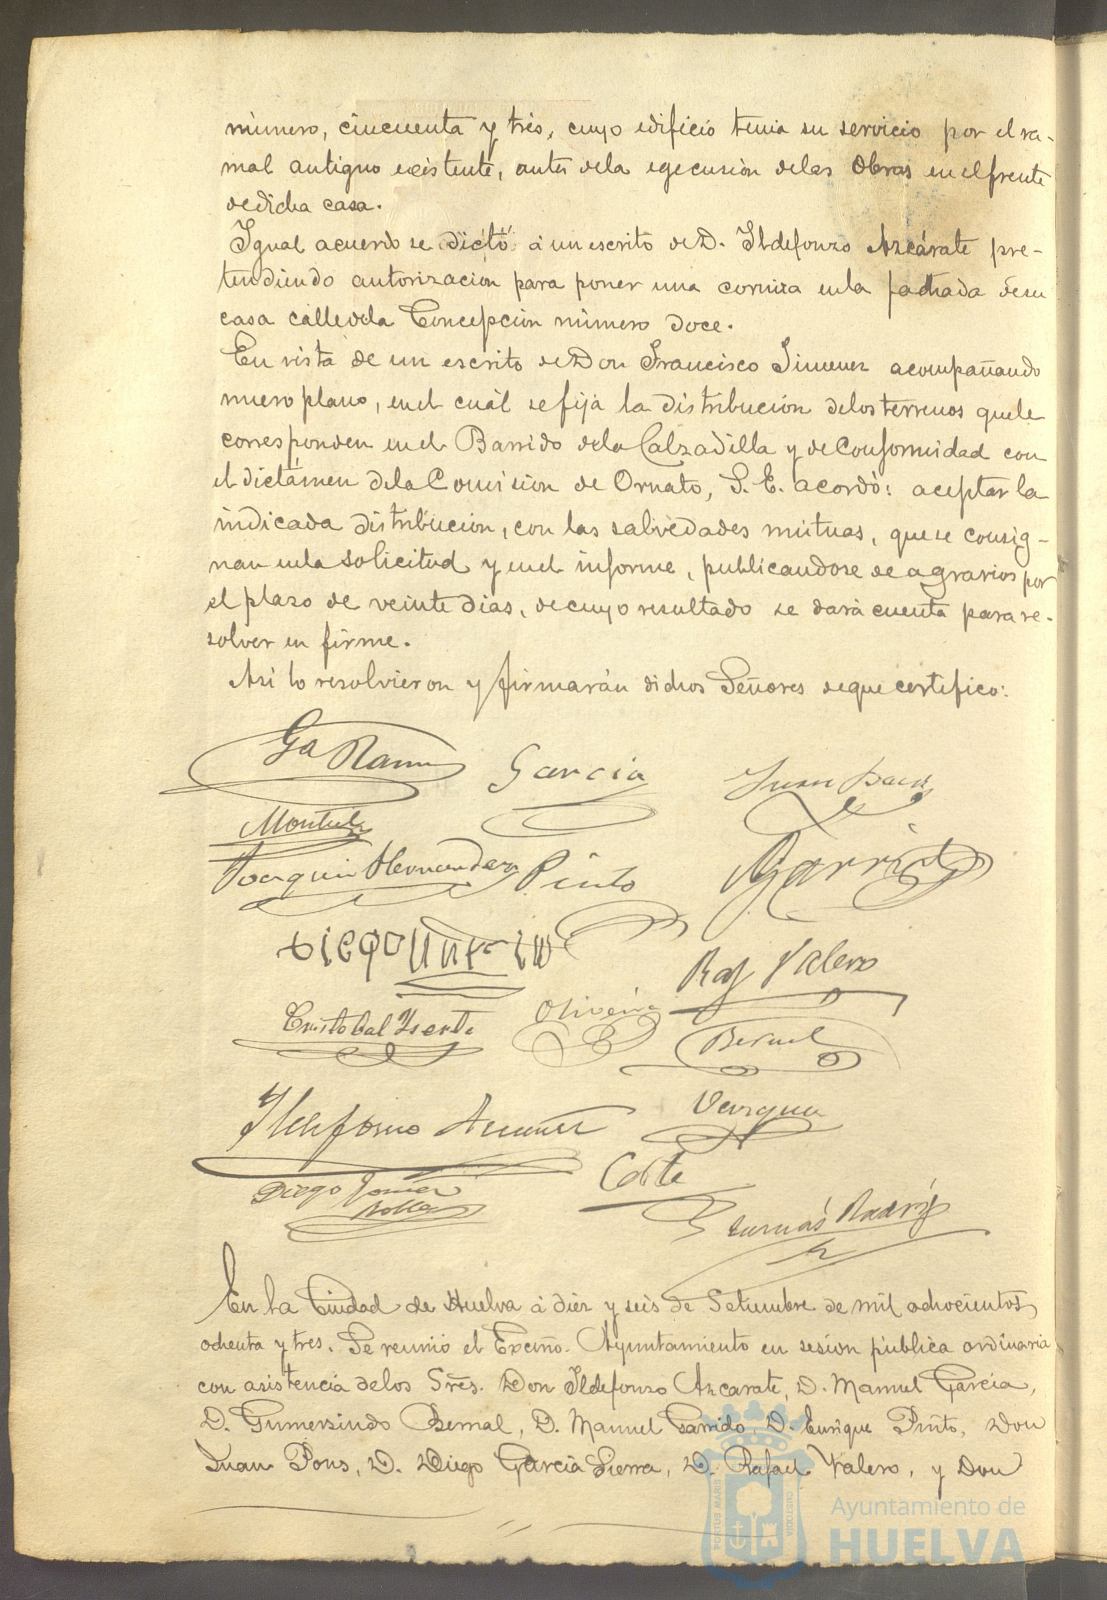 número, cincuenta y trés, cuyo edificio tenia su servicio por el ra-
mal antiguo existente, antes dela egecusión delas Obras en el frente
dedicha casa.
Igual acuerdo se dictó á un escrito de D. Ildefonzo Azcárate pre-
tendiendo autorización para poner una corniza enla fachada desu
casa calledela Concepción número doce.
En vista de un escrito de Don Francisco Jimenez acompañando
nuevo plano, enel cuál se fija la distribución delos terrenos quele
corresponden enel Barrido dela Calzadilla y de Conformidad con
el dictámen dela Comision de Ornato, S. E. acordó: aceptar la
indicada distribución, con las salvedades mútuas, que se consig-
nan enla solicitud y enel informe, publicandose de agravios por
el plazo de veinte dias, de cuyo resultado se dará cuenta para re-
solver en firme.
Asi lo resolvieron y firmarán dichos Señores deque certifico:
Ga Ramn García Juan
Joaquin Hernandez Pinto Garrido
Diego
Raf Valero
Cristobal Oliveira
Bernal
Ildefonso
Vargas
Diego Gomez
Corte
Tomás Rodrig
En la Ciudad de Huelva á diez y seis de Setiembre de mil ochocientos
ochenta y tres. Se reunió el Excmo. Ayuntamiento en sesión pública ordinaria
con asistencia delos Sres. Don Ildefonzo Azcarate, D. Manuel García,
D. Gumersindo Bernal, D. Manuel Garrido, D. Enrique Pinto, Don
Juan Pons, D. Diego García Sierra, D. Rafael Valero, y Don
PORTUS MARIS
CUSTODIA
Ayuntamiento de
HUELVA